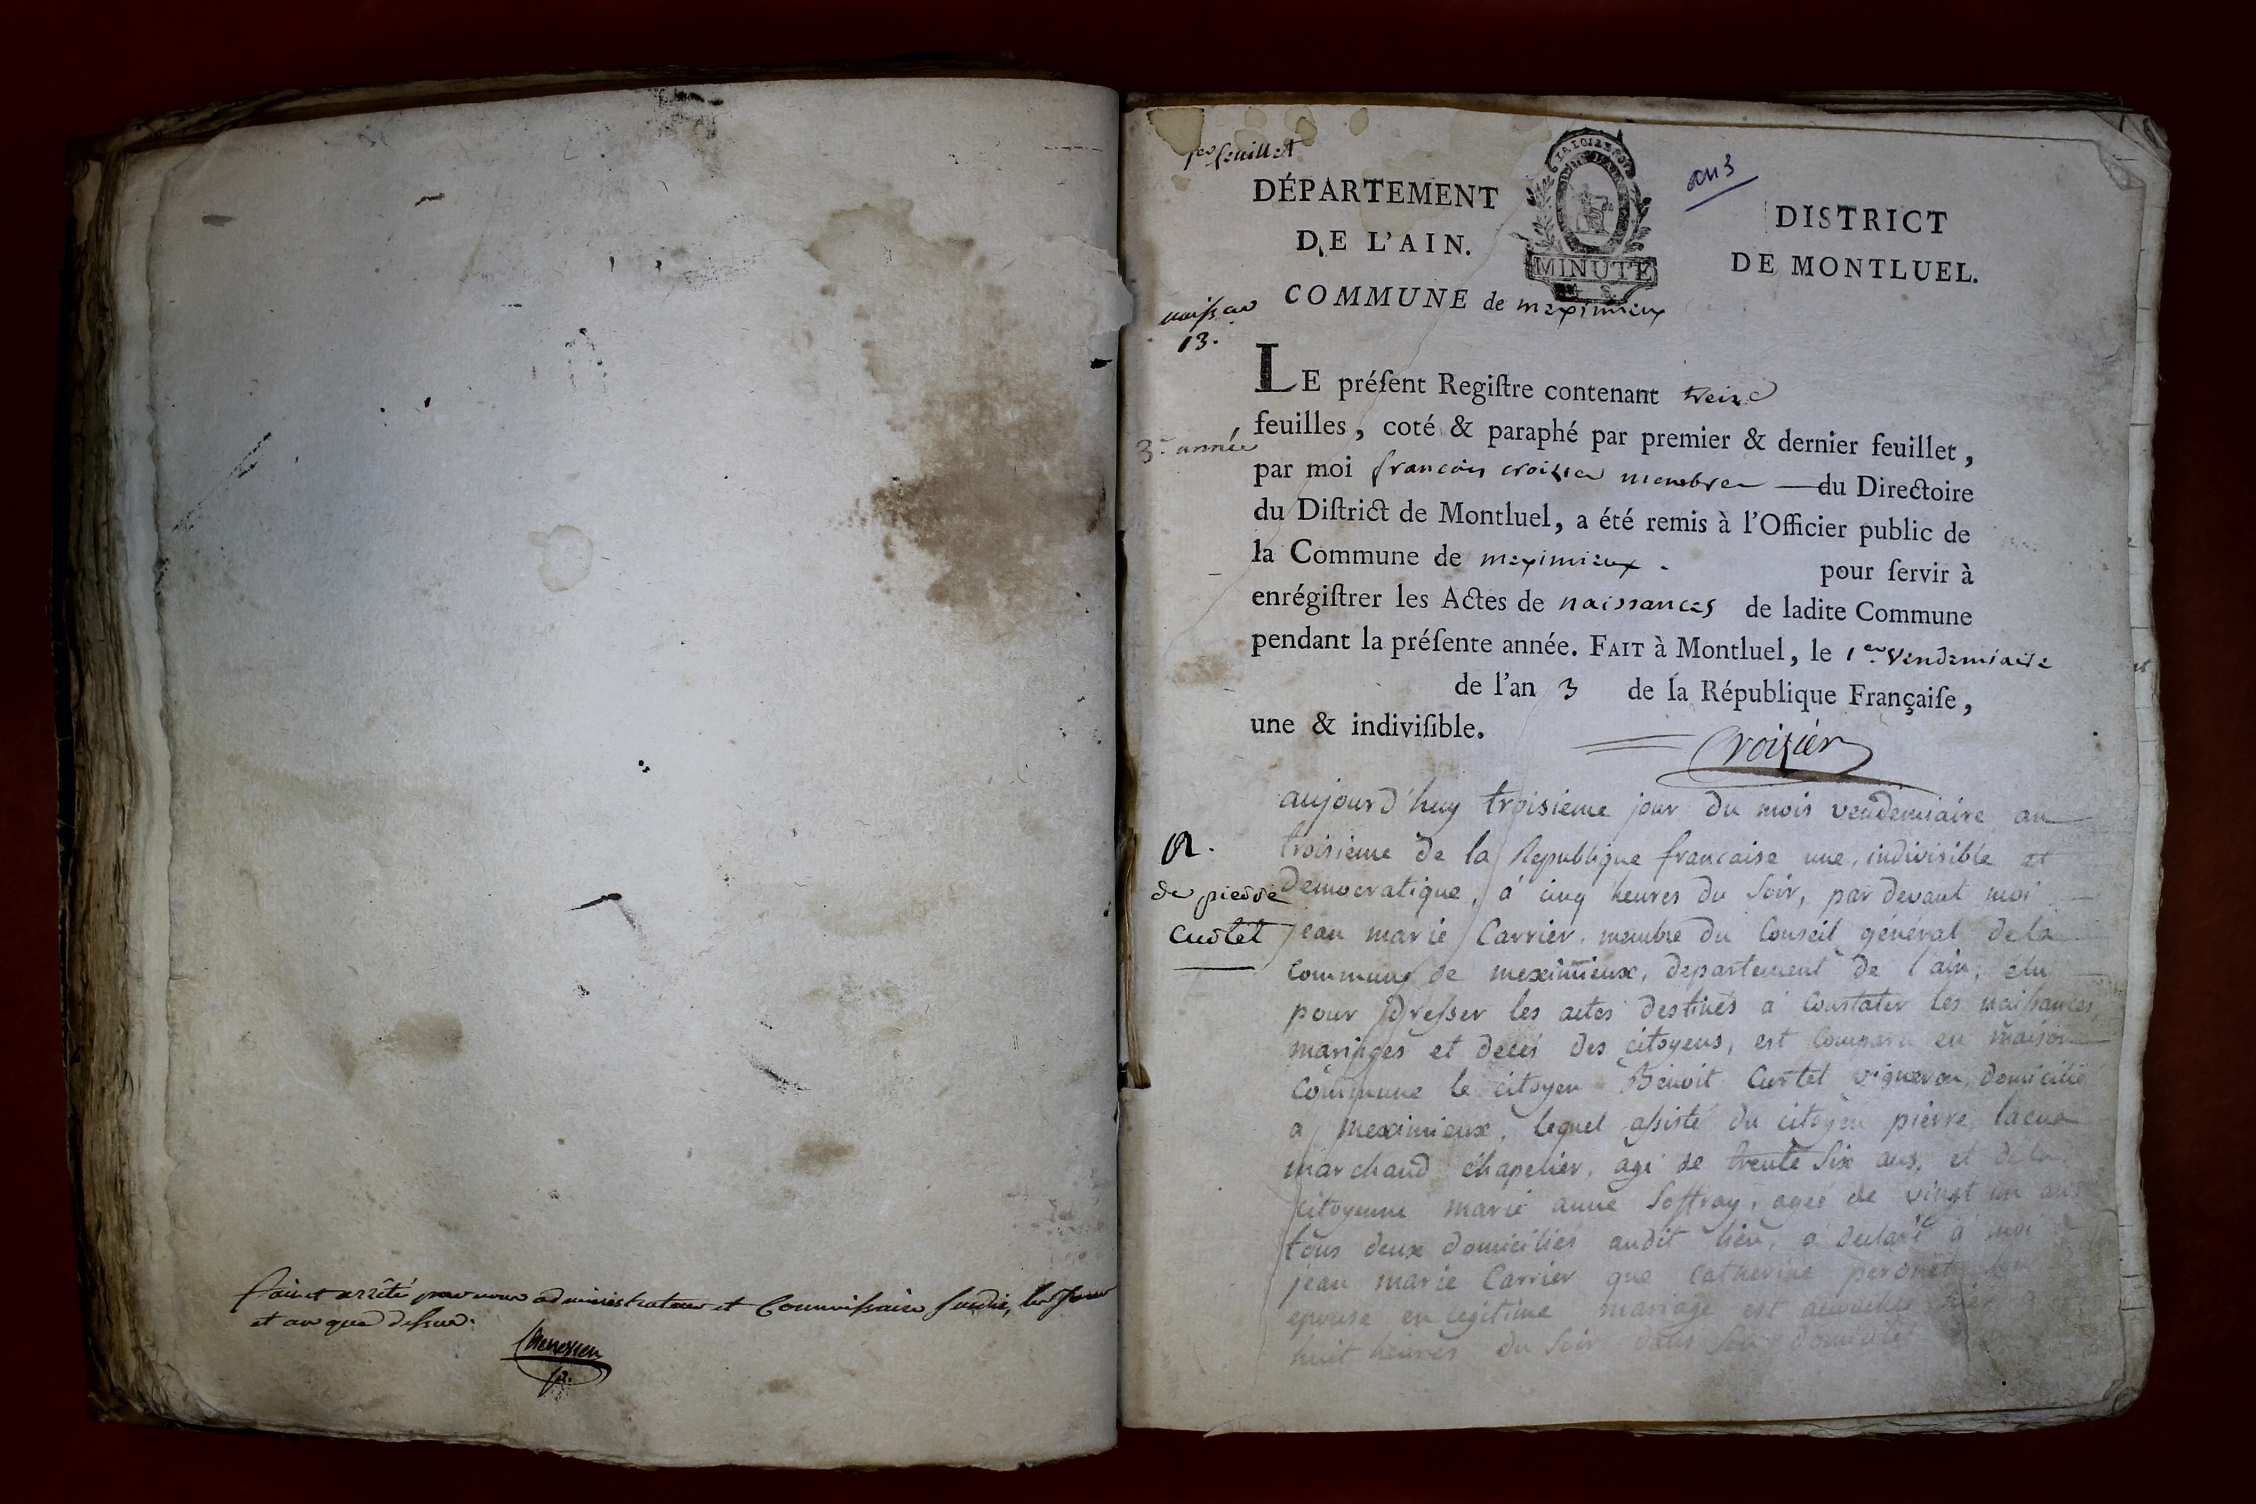 fait et arrêté par nous administrateur et Commissaire susdit, les jour
et an que dessus.
1er feuillet
DÉPARTEMENT
DE L'AIN.
MINUTE
an 3
DISTRICT
DE MONTLUEL.
COMMUNE de meximieux
13.
LE préſent Regiſtre contenant treize
feuilles, coté & paraphé par premier & dernier feuillet,
3e année
par moi francois croizier membre du Directoire
du Diſtrict de Montluel, a été remis à l'Officier public de
la Commune de meximieux. pour ſervir à
enrégiſtrer les Actes de naissances de ladite Commune
pendant la préſente année. FAIT à Montluel, le 1er vendemiaire
de l'an 3 de la République Françaiſe,
une & indiviſible.
Croizier
N.
de pierre
Curtet
aujourd'huy troisieme jour du mois vendemiaire an
troisieme de la Republique francaise une, indivisible et
Democratique, á cinq heures du Soir, par devant moi
jean marie Carrier, membre du Conseil général de la
commune de meximieux, departement de l'ain, elu
pour dresser les actes destinés a Constater les naissances,
mariages et décés des citoyens, est Comparu en maison
Commune le citoyen Benoit Curtet vigneron, domicilié
a meximieux, lequel assisté du citoyen pierre lacua
marchand chapelier, agé de trente Six ans, et de la
citoyenne marie anne Soffray, ageé de vingt un ans
tous deux domiciliés audit lieu, a declaré a moi
jean marie Carrier que Catherine peronet Son
epouse en legitime mariage est accouchée hier
huit heures du Soir dans Son domicile